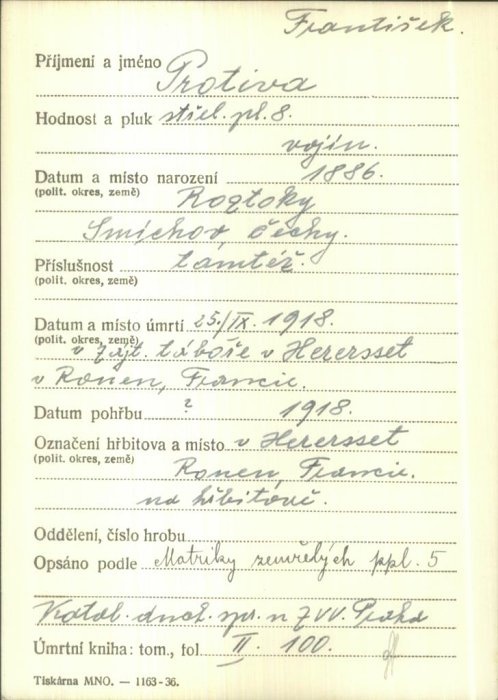 František.
Příjmení a jméno Protiva
Hodnost a pluk střel. pl. 8.
vojín.
Datum a místo narození 1886.
(polit. okres, země) Roztoky
Smíchov, Čechy.
Příslušnost tamtéž.
(polit. okres, země)
Datum a místo úmrtí 25./IX. 1918.
(polit. okres, země) v zajt. táboře v Herersset
v Ronen, Francie.
Datum pohřbu ? 1918.
Označení hřbitova a místo v Herersset
(polit. okres, země) Ronen, Francie.
na hřbitově.
Oddělení, číslo hrobu
Opsáno podle Matriky zemřelých ppl. 5
Katol. duch. spr. n ZVV. Praha
Úmrtní kniha: tom., fol. II. 100.
Tiskárna MNO. — 1163-36.